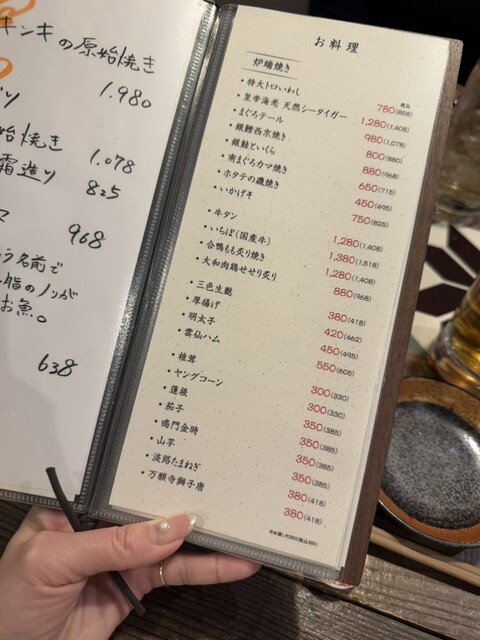 キンキの原始焼き
1.980
始焼き 1.078
霜造り 825
968
う名前で
脂のノリが
お魚。
638
お料理
炉端焼き
税込
・特大トロいわし 780(858)
・皇帝海老 天然シータイガー 1,280(1,408)
・まぐろテール 980(1,078)
・銀鱈西京焼き 800(880)
・銀鮭といくら 880(968)
・南まぐろカマ焼き 650(715)
・ホタテの磯焼き 450(495)
・いかげそ 750(825)
・牛タン 1,280(1,408)
・いちぼ(国産牛) 1,380(1,518)
・合鴨もも炙り焼き 1,280(1,408)
・大和肉鶏せせり炙り 880(968)
・三色生麩 380(418)
・厚揚げ 420(462)
・明太子 450(495)
・雲仙ハム 550(605)
・椎茸 300(330)
・ヤングコーン 300(330)
・蓮根 350(385)
・茄子 350(385)
・鳴門金時 350(385)
・山芋 350(385)
・淡路たまねぎ 380(418)
・万願寺獅子唐 380(418)